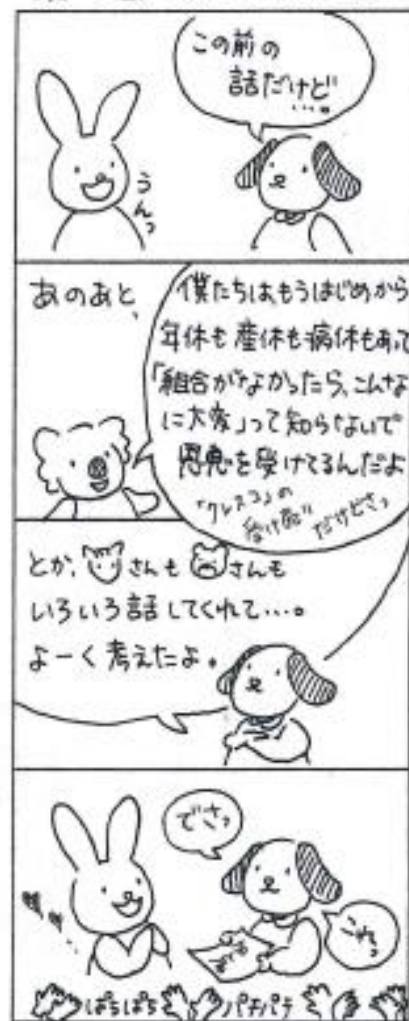 この前の
話だけど…。
うんっ
あのあと、
僕たちは、もうはじめから
年休も産休も病休もあって
「組合がなかったら、こんな
に大変」って知らないで
恩恵を受けてるんだよ
「クレスコ」の
受け売り
だけどさっ
とか、さんもさんも
いろいろ話してくれて…。
よーく考えたよ。
でさっ
これっ
ぱちぱち
パチパチ